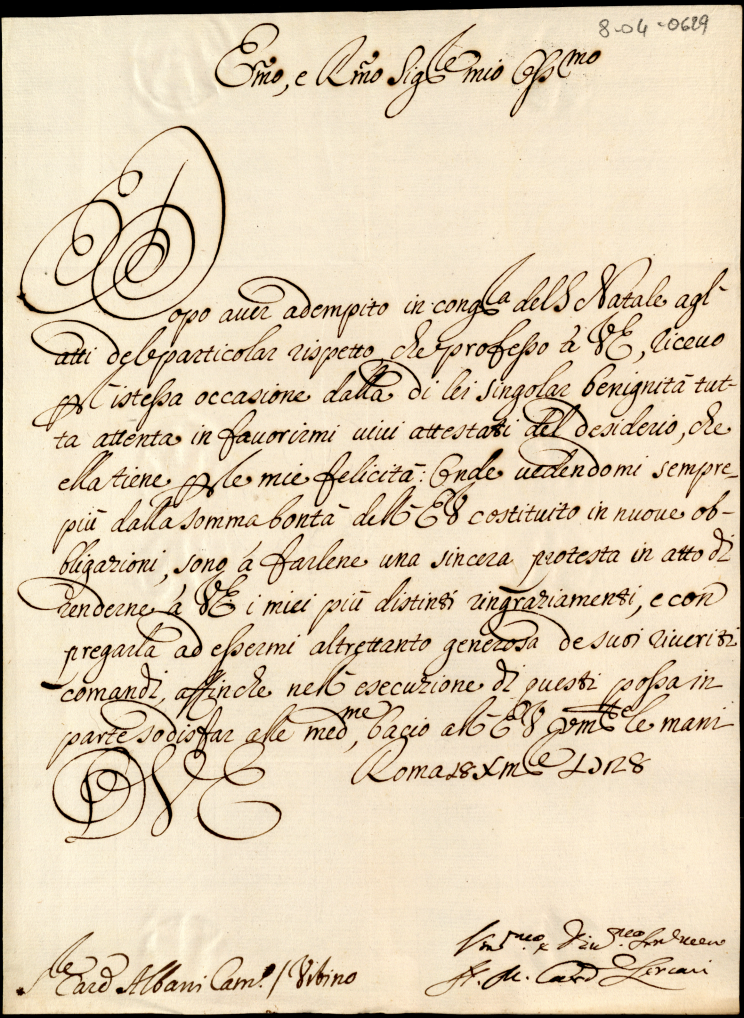 8-04-0629
Emo, e Rmo Sigre mio Ossmo
Dopo aver adempito in congra del S Natale agl'
atti del particolar rispetto, che professo à VE, ricevo
nell'istessa occasione dalla di lei singolar benignità tut-
ta attenta in favorirmi vivi attestati del desiderio, che
ella tiene per le mie felicità: Onde vedendomi sempre
più dalla somma bontà dell'EV costituito in nuove ob-
bligazioni, sono à farlene una sincera protesta in atto di
renderne à VE i miei più distinti ringraziamenti, e con
pregarla ad essermi altrettanto generosa de suoi riveriti
comandi, affinche nell'esecuzione di questi possa in
parte sodisfar alle medme, bacio all'EV ummte le mani
Roma 18 Xmre 1728
DVE
Sre Card Albani Camo / Urbino
N. M. Card Lercari